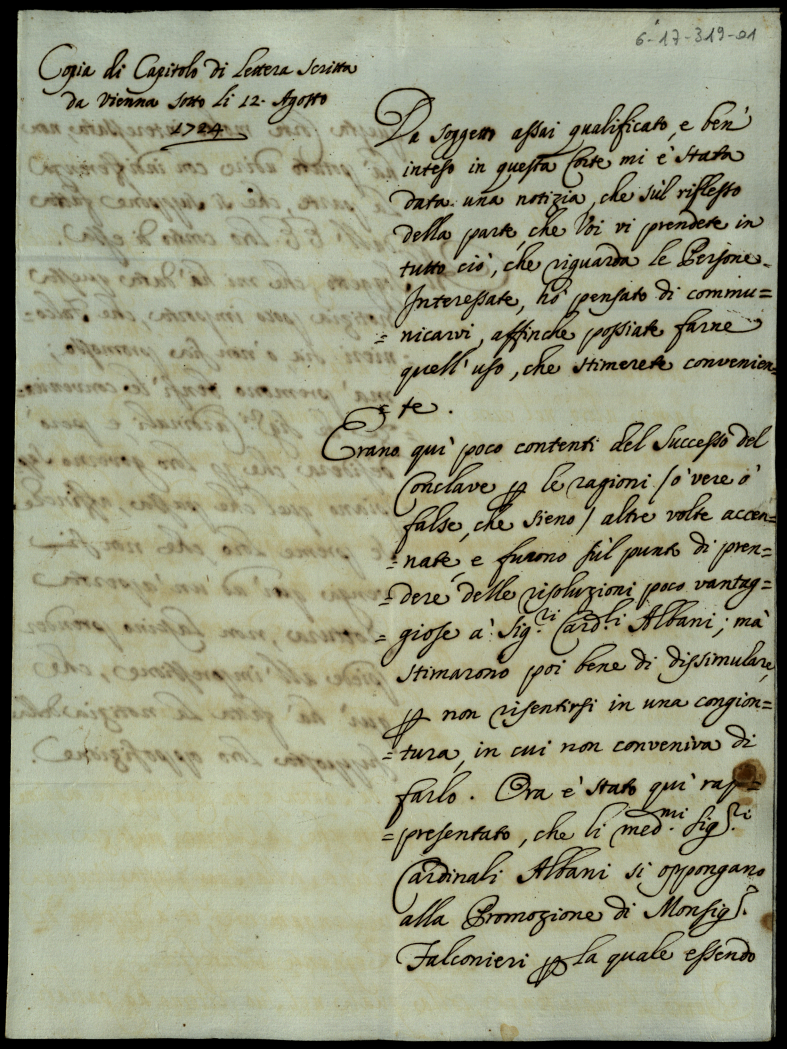 6-17-319-01
Copia di Capitolo di lettera scritta
da Vienna sotto li 12. Agosto
1724
Da soggetto assai qualificato, e ben'
inteso in questa Corte mi è stata
data una notizia, che sùl riflesso
della parte, che Voi vi prendete in
tutto ciò, che riguarda le Persone
Interessate, hò pensato di commu=
=nicarvi, affinche possiate farne
quell'uso, che stimerete convenien=
=te.
Erano quì poco contenti del Successo del
Conclave ꝑ le ragioni / ò vere ò
false, che sieno / altre volte accen=
=nate, e furono sùl punto di pren=
=dere delle risoluzioni poco vantag=
=giose à Sig.ri Card.li Albani; mà
stimarono poi bene di dissimulare,
ꝑ non risentirsi in una congion=
=tura, in cui non conveniva di
farlo. Ora è stato quì rap=
=presentato, che li med.mi Sig.ri
Cardinali Albani si oppongano
alla Promozione di Monsig.r
Falconieri ꝑ la quale essendo